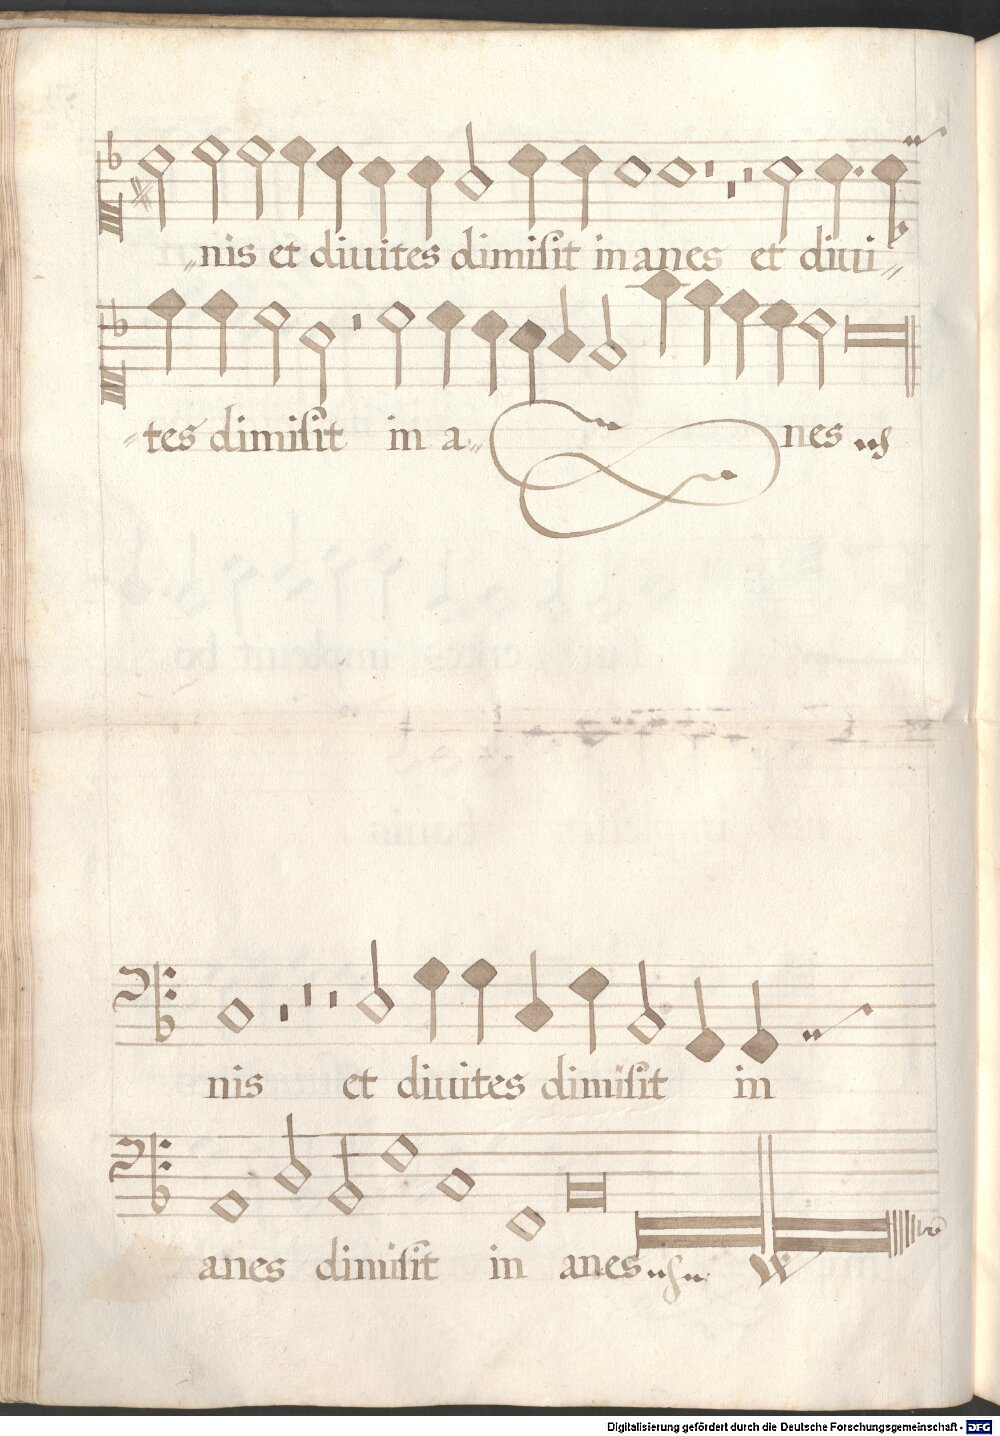 nis et diuites dimiſit in anes et diui
tes dimiſit in a nes
nis et diuites dimiſit in
anes dimiſit in anes
Digitalisierung gefördert durch die Deutsche Forschungsgemeinschaft - DFG